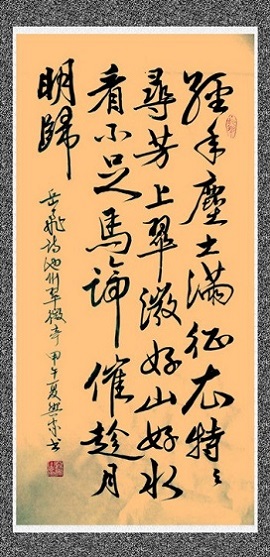 經年塵土滿征衣特〻
尋芳上翠微好山好水
看不足馬蹄催趁月
明歸
岳飛詩池州翠微亭甲午夏書